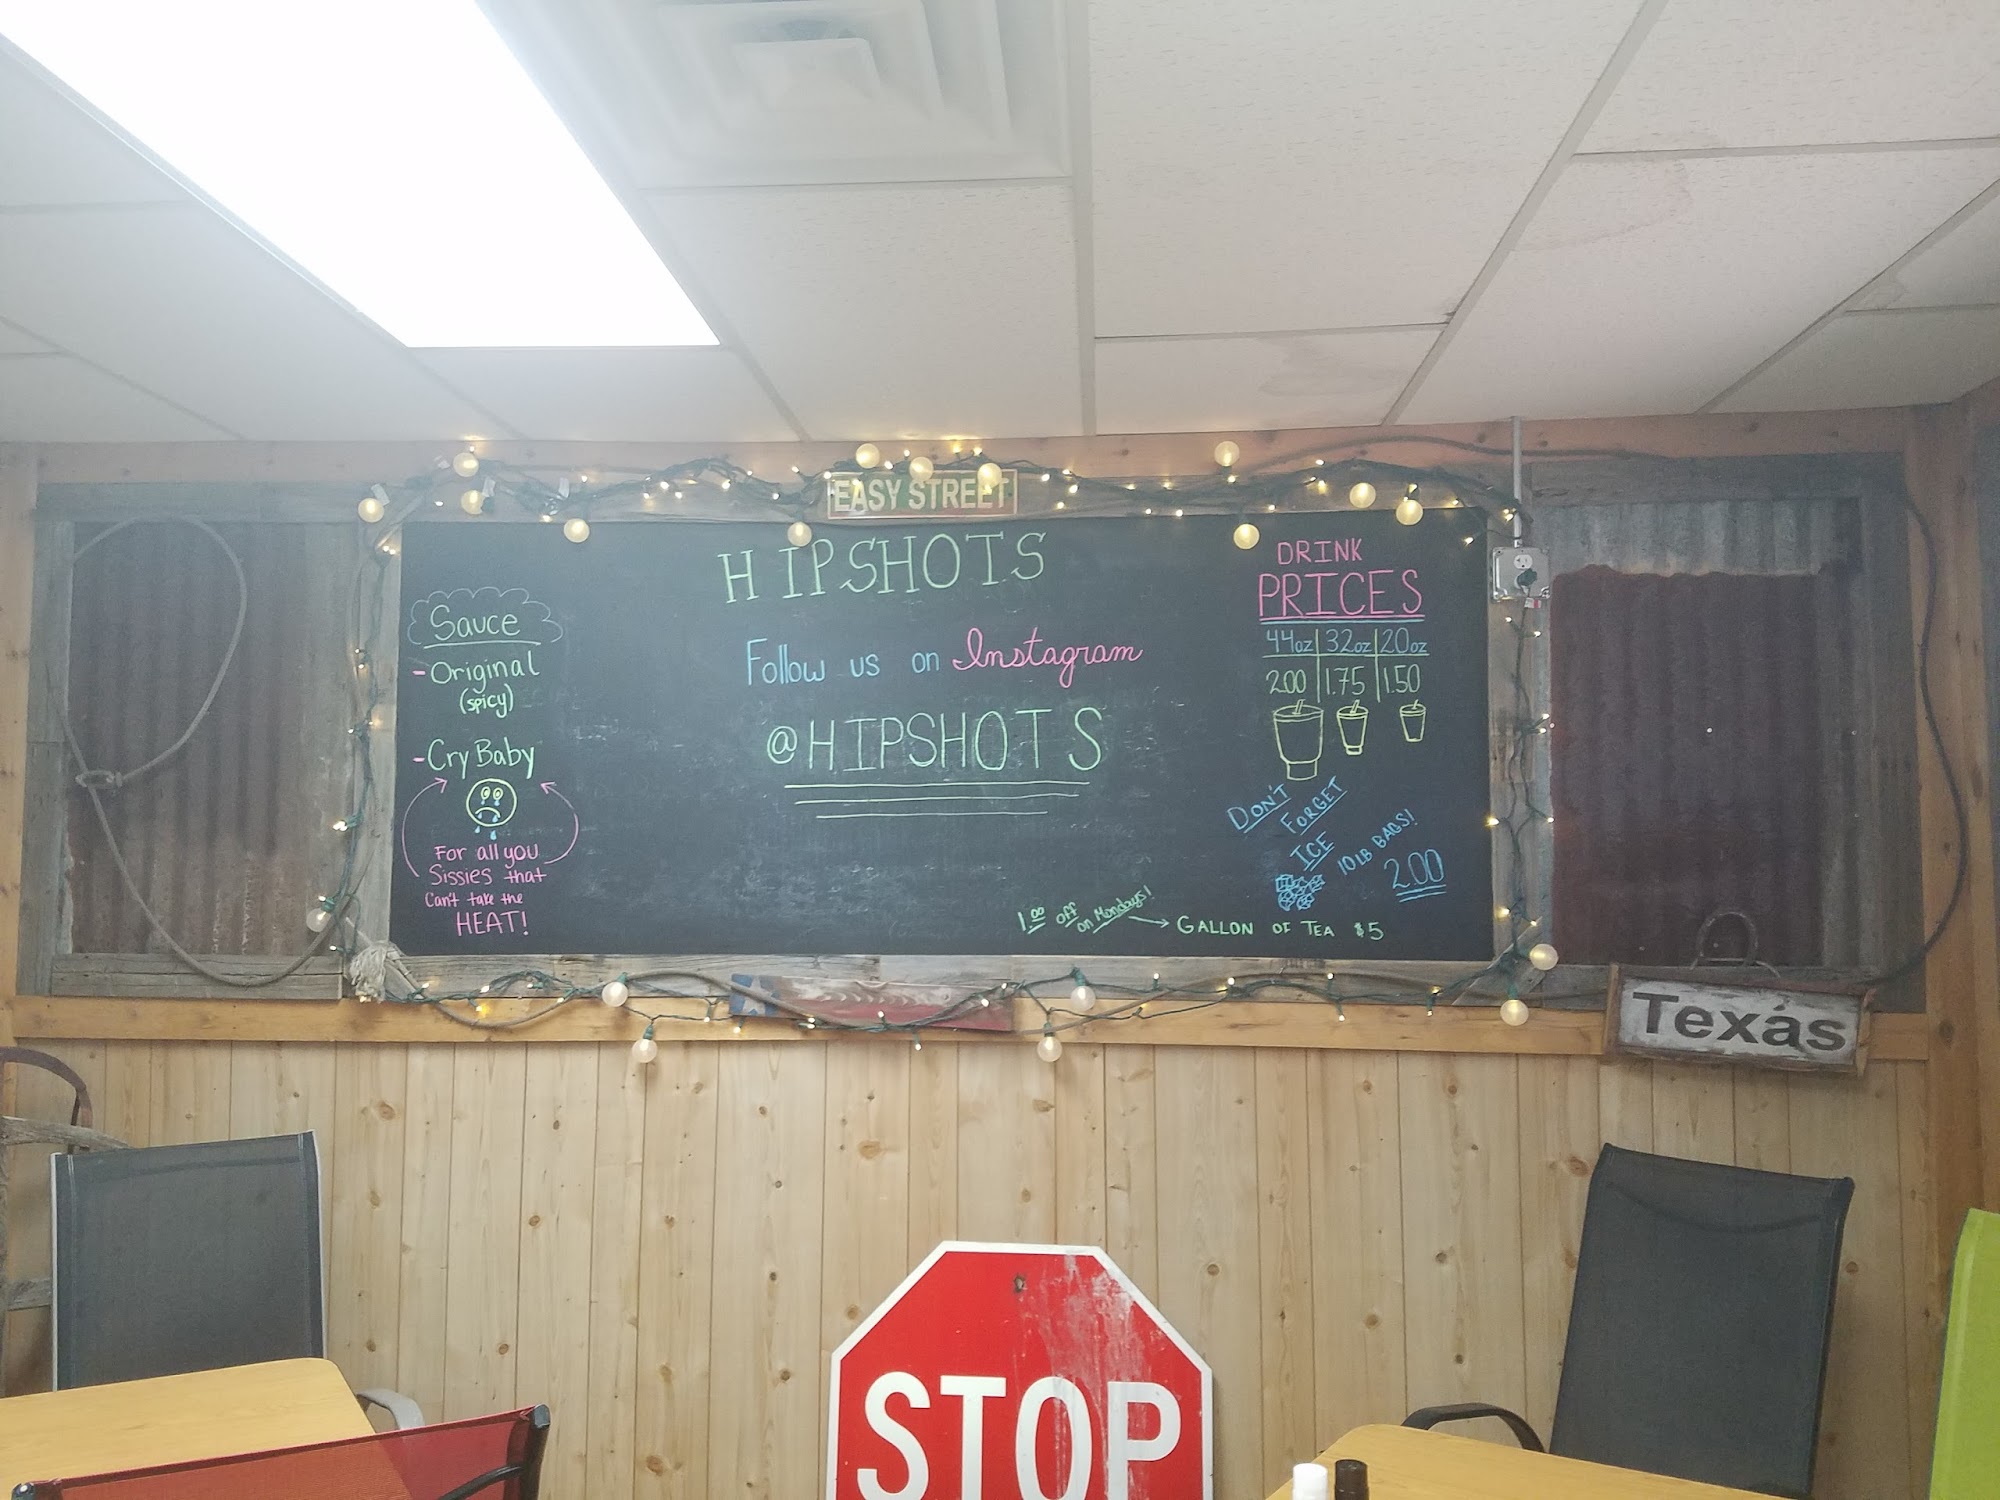 EASY STREET
HIPSHOTS
Follow us on Instagram
@HIPSHOTS
Sauce
- Original
(spicy)
- Cry Baby
For all you
Sissies that
Can't take the
HEAT!
DRINK
PRICES
44oz 32oz 20oz
2.00 1.75 1.50
DON'T
FORGET
ICE
10LB BAGS!
2.00
1.00 off
on Mondays!
GALLON OF TEA $5
Texas
STOP